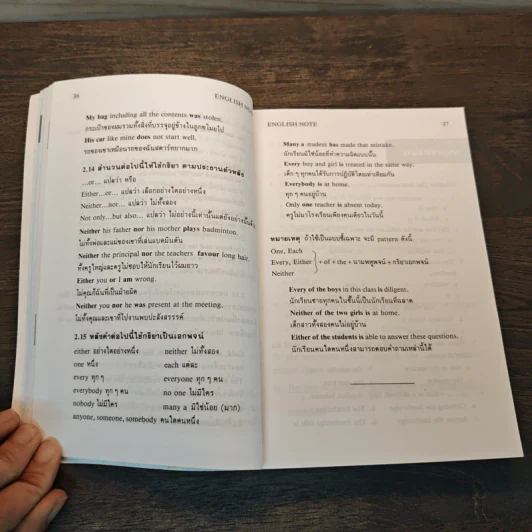 36
ENGLISH NOTE
My bag including all the contents was stolen.
กระเป๋าของผมรวมทั้งสิ่งที่บรรจุอยู่ข้างในถูกขโมยไป
His car like mine does not start well.
รถของเขาเหมือนรถของฉันสตาร์ทยากมาก
2.14 สำนวนต่อไปนี้ให้ใช้กริยา ตามประธานตัวหลัง
...or... แปลว่า หรือ
Either...or... แปลว่า เลือกอย่างใดอย่างหนึ่ง
Neither...nor... แปลว่า ไม่ทั้งสอง
Not only...but also... แปลว่า ไม่อย่างนี้เท่านั้นแต่ยังอย่างนั้นด้วย
Neither his father nor his mother plays badminton.
ไม่ทั้งพ่อและแม่ของเขาที่เล่นแบดมินตัน
Neither the principal nor the teachers favour long hair.
ทั้งครูใหญ่และครูไม่ชอบให้นักเรียนไว้ผมยาว
Either you or I am wrong.
ไม่คุณก็ฉันที่เป็นฝ่ายผิด
Neither you nor he was present at the meeting.
ไม่ทั้งคุณและเขาที่ไปงานพบปะสังสรรค์
2.15 หลังคำต่อไปนี้ใช้กริยาเป็นเอกพจน์
either อย่างใดอย่างหนึ่ง neither ไม่ทั้งสอง
one หนึ่ง each แต่ละ
every ทุก ๆ everyone ทุก ๆ คน
everybody ทุก ๆ คน no one ไม่มีใคร
nobody ไม่มีใคร many a มีใช่น้อย (มาก)
anyone, someone, somebody คนใดคนหนึ่ง
ENGLISH NOTE
37
Many a student has made that mistake.
นักเรียนมิใช่น้อยที่ทำความผิดแบบนั้น
Every boy and girl is treated in the same way.
เด็ก ๆ ทุกคนได้รับการปฏิบัติโดยเท่าเทียมกัน
Everybody is at home.
ทุก ๆ คนอยู่บ้าน
Only one teacher is absent today.
ครูไม่มาโรงเรียนเพียงคนเดียวในวันนี้
หมายเหตุ ถ้าใช้เป็นแบบชี้เฉพาะ จะมี pattern ดังนี้
One, Each
Every, Either +of + the + นามพหูพจน์ + กริยาเอกพจน์
Neither
Every of the boys in this class is diligent.
นักเรียนชายทุกคนในชั้นนี้เป็นนักเรียนที่ฉลาด
Neither of the two girls is at home.
เด็กสาวทั้งสองคนไม่อยู่บ้าน
Either of the students is able to answer these questions.
นักเรียนคนใดคนหนึ่งสามารถตอบคำถามเหล่านี้ได้